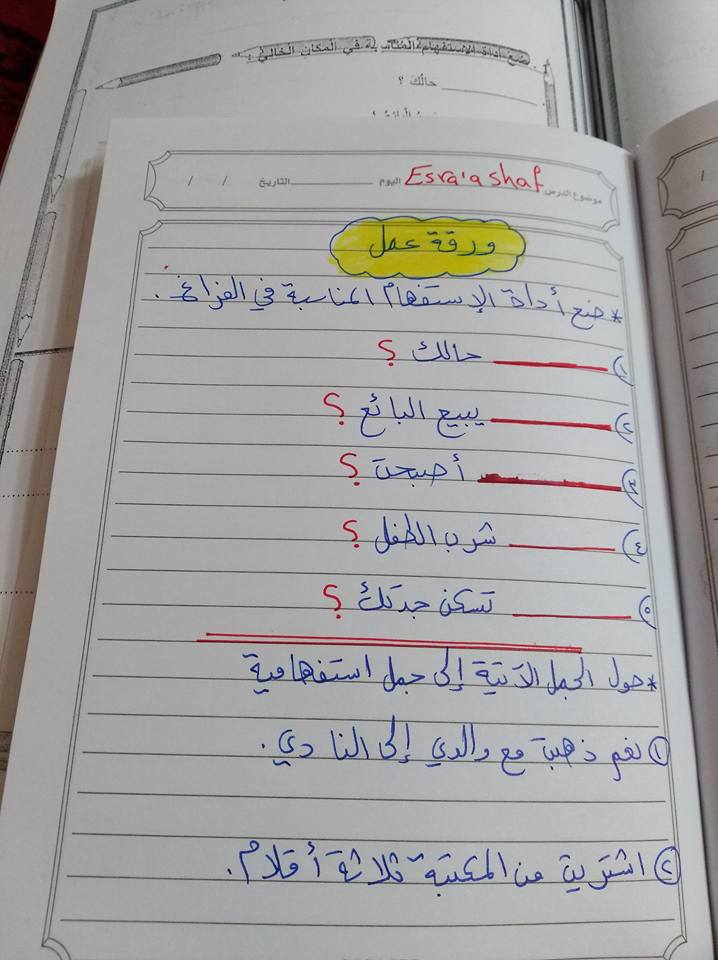 ضع أداة الاستفهام المناسبة في المكان الخالي :
حالك ؟
موضوع الدرس Esra'a shaf اليوم التاريخ / /
ورقة عمل
* ضع أداة الإستفهام المناسبة في الفراغ.
١) حالك ؟
٢) يبيع البائع ؟
٣) أصبحت ؟
٤) شرب الطفل ؟
٥) تسكن جدتك ؟
* حول الجمل الآتية إلى جمل استفهامية
١ نعم ذهبت مع والدي إلى النادي.
٢ اشتريت من المكتبة ثلاثة أقلام.